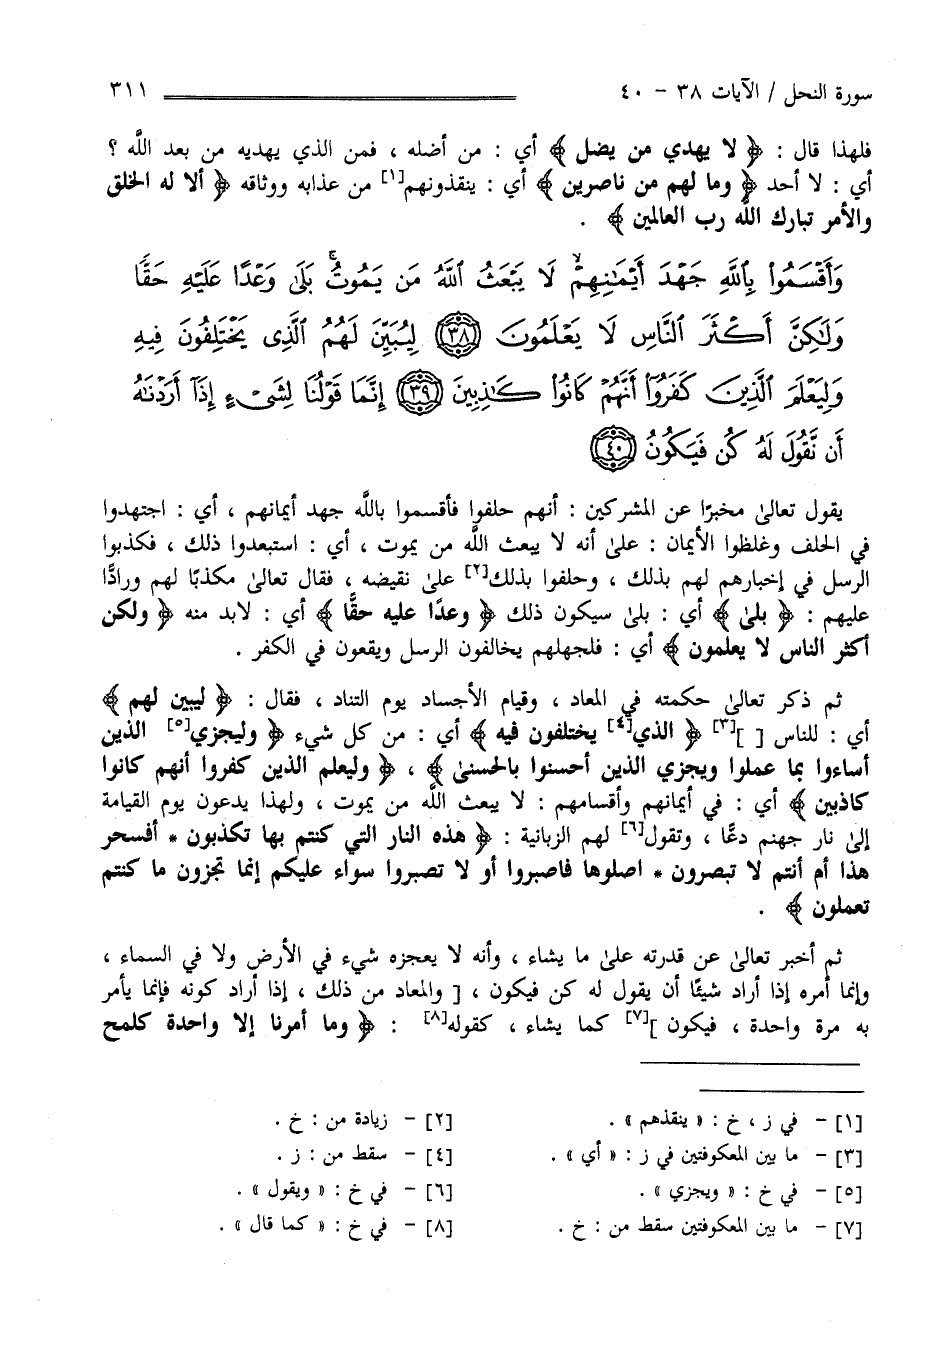 سورة النحل / الآيات ٣٨ - ٤٠ ٣١١
فلهذا قال : ﴿ لا يهدي من يضل ﴾ أي : من أضله ، فمن الذي يهديه من بعد اللَّه ؟
أي : لا أحد ﴿ وما لهم من ناصرين ﴾ أي : ينقذونهم[١] من عذابه ووثاقه ﴿ ألا له الخلق
والأمر تبارك اللَّه رب العالمين ﴾ .
وَأَقْسَمُوا۟ بِٱللَّهِ جَهْدَ أَيْمَـٰنِهِمْ ۙ لَا يَبْعَثُ ٱللَّهُ مَن يَمُوتُ ۚ بَلَىٰ وَعْدًا عَلَيْهِ حَقًّا
وَلَـٰكِنَّ أَكْثَرَ ٱلنَّاسِ لَا يَعْلَمُونَ ﴿٣٨﴾ لِيُبَيِّنَ لَهُمُ ٱلَّذِى يَخْتَلِفُونَ فِيهِ
وَلِيَعْلَمَ ٱلَّذِينَ كَفَرُوٓا۟ أَنَّهُمْ كَانُوا۟ كَـٰذِبِينَ ﴿٣٩﴾ إِنَّمَا قَوْلُنَا لِشَىْءٍ إِذَآ أَرَدْنَـٰهُ
أَن نَّقُولَ لَهُۥ كُن فَيَكُونُ ﴿٤٠﴾
يقول تعالىٰ مخبرًا عن المشركين : أنهم حلفوا فأقسموا باللَّه جهد أيمانهم ، أي : اجتهدوا
في الحلف وغلظوا الأيمان : علىٰ أنه لا يبعث اللَّه من يموت ، أي : استبعدوا ذلك ، فكذبوا
الرسل في إخبارهم لهم بذلك ، وحلفوا بذلك[٢] علىٰ نقيضه ، فقال تعالىٰ مكذبًا لهم ورادًّا
عليهم : ﴿ بلىٰ ﴾ أي : بلىٰ سيكون ذلك ﴿ وعدًا عليه حقًّا ﴾ أي : لابد منه ﴿ ولكن
أكثر الناس لا يعلمون ﴾ أي : فلجهلهم يخالفون الرسل ويقعون في الكفر .
ثم ذكر تعالىٰ حكمته في المعاد ، وقيام الأجساد يوم التناد ، فقال : ﴿ ليبين لهم ﴾
أي : للناس [ ][٣] ﴿ الذي[٤] يختلفون فيه ﴾ أي : من كل شيء ﴿ وليجزي[٥] الذين
أساءوا بما عملوا ويجزي الذين أحسنوا بالحسنىٰ ﴾ ، ﴿ وليعلم الذين كفروا أنهم كانوا
كاذبين ﴾ أي : في أيمانهم وأقسامهم : لا يبعث اللَّه من يموت ، ولهذا يدعون يوم القيامة
إلىٰ نار جهنم دعًّا ، وتقول[٦] لهم الزبانية : ﴿ هذه النار التي كنتم بها تكذبون * أفسحر
هذا أم أنتم لا تبصرون * اصلوها فاصبروا أو لا تصبروا سواء عليكم إنما تجزون ما كنتم
تعملون ﴾ .
ثم أخبر تعالىٰ عن قدرته علىٰ ما يشاء ، وأنه لا يعجزه شيء في الأرض ولا في السماء ،
وإنما أمره إذا أراد شيئًا أن يقول له كن فيكون ، [ والمعاد من ذلك ، إذا أراد كونه فإنما يأمر
به مرة واحدة ، فيكون ][٧] كما يشاء ، كقوله[٨] : ﴿ وما أمرنا إلا واحدة كلمح
[١] - في ز ، خ : « ينقذهم » . [٢] - زيادة من : خ .
[٣] - ما بين المعكوفتين في ز : « أي » . [٤] - سقط من : ز .
[٥] - في خ : « ويجزي » . [٦] - في خ : « ويقول » .
[٧] - ما بين المعكوفتين سقط من : خ . [٨] - في خ : « كما قال » .